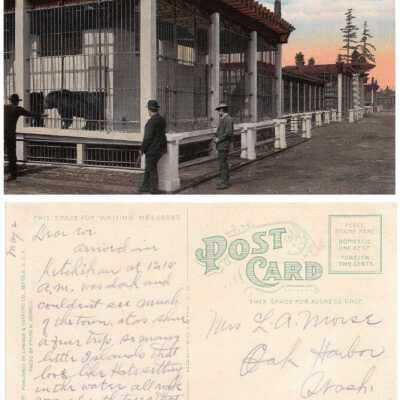 THIS SPACE FOR WRITING MESSAGES
POST CARD
PLACE
STAMP HERE
DOMESTIC
ONE CENT
FOREIGN
TWO CENTS
THIS SPACE FOR ADDRESS ONLY
May 2
Dear
arrived in
Ketchikan at 12:10
A.M. was dark and
couldn't see much
of the town, it was sure
a fine trip, so many
little Islands that
look like Hats sitting
in the water all rock
Mrs L. A. Morse
Oak Harbor
Wash.